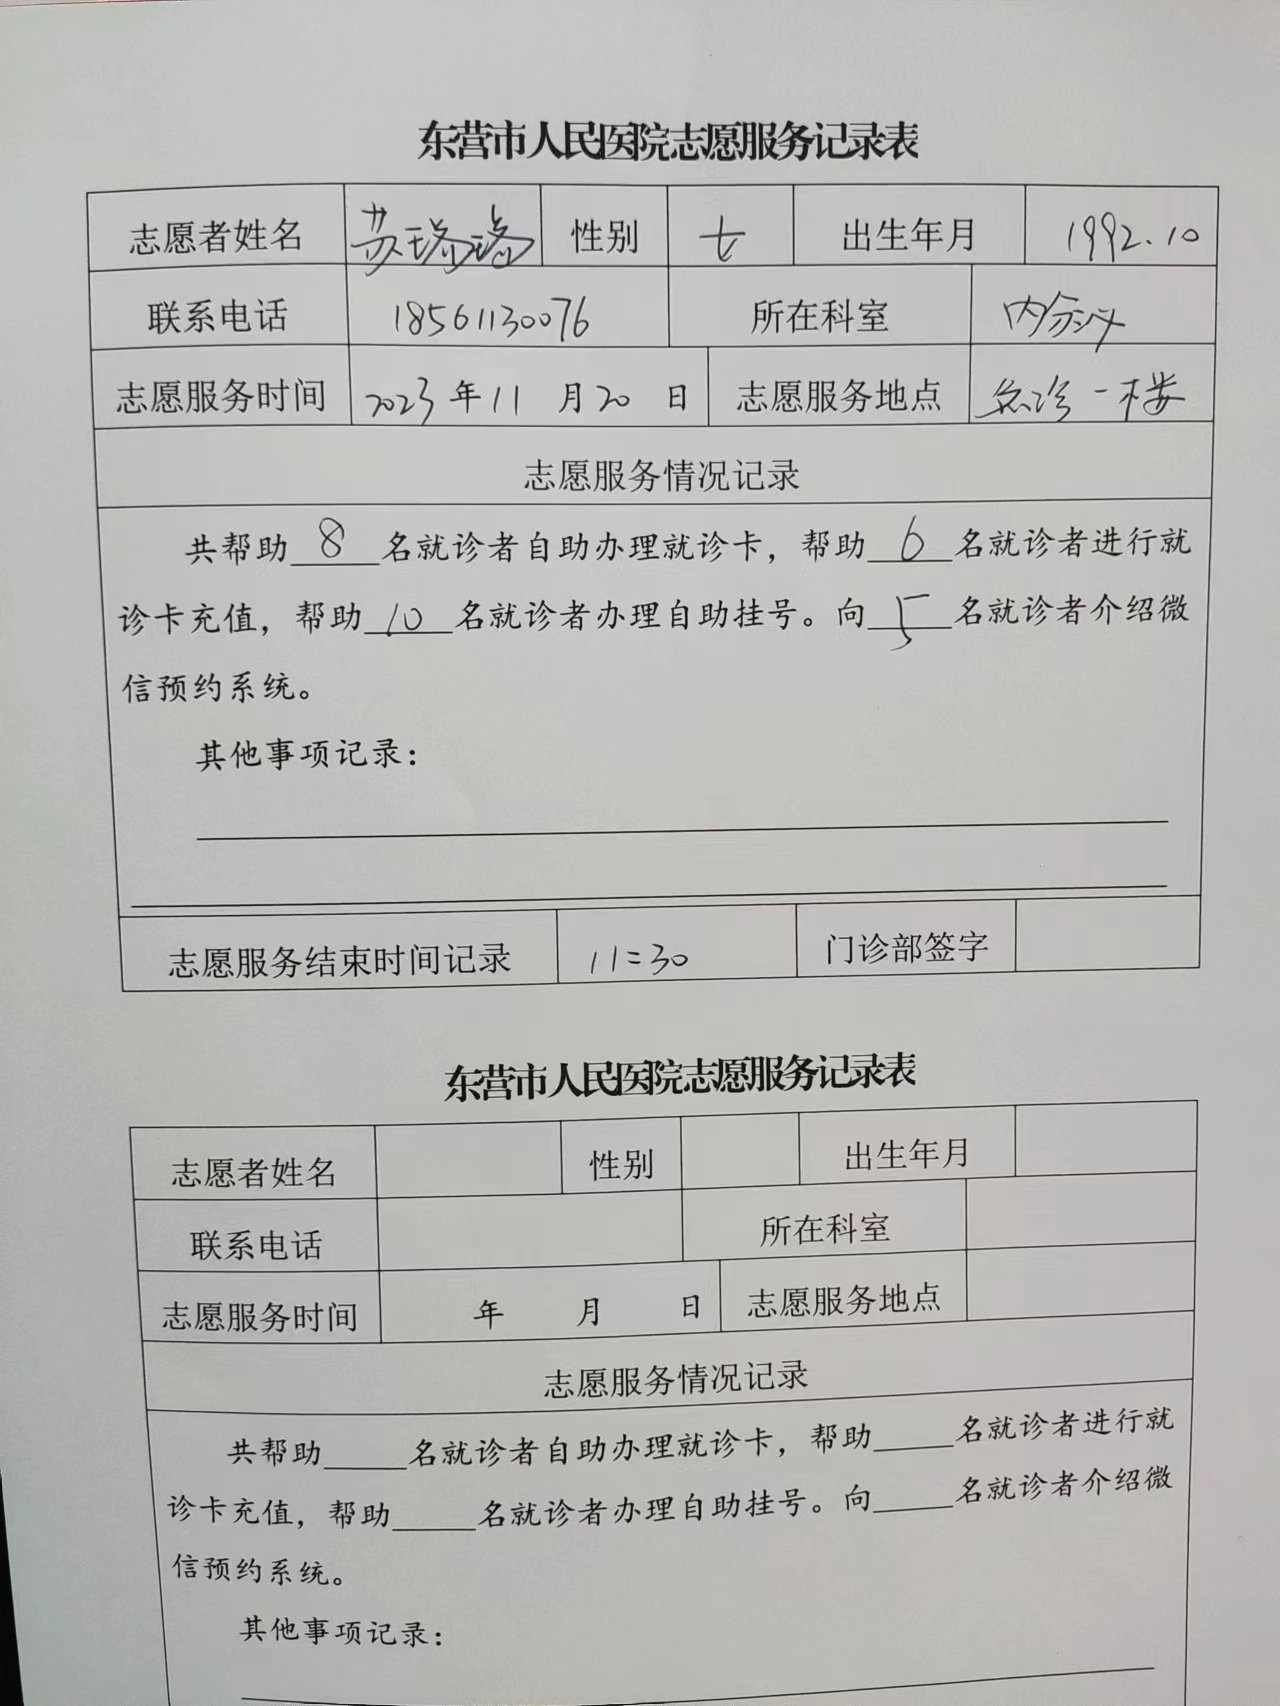 东营市人民医院志愿服务记录表
志愿者姓名 苏璐璐 性别 女 出生年月 1992.10
联系电话 18561130076 所在科室 内分泌
志愿服务时间 2023年11月20日 志愿服务地点 急诊一楼
志愿服务情况记录
共帮助8名就诊者自助办理就诊卡，帮助6名就诊者进行就
诊卡充值，帮助10名就诊者办理自助挂号。向5名就诊者介绍微
信预约系统。
其他事项记录：
志愿服务结束时间记录 11:30 门诊部签字
东营市人民医院志愿服务记录表
志愿者姓名 性别 出生年月
联系电话 所在科室
志愿服务时间 年 月 日 志愿服务地点
志愿服务情况记录
共帮助____名就诊者自助办理就诊卡，帮助____名就诊者进行就
诊卡充值，帮助____名就诊者办理自助挂号。向____名就诊者介绍微
信预约系统。
其他事项记录：